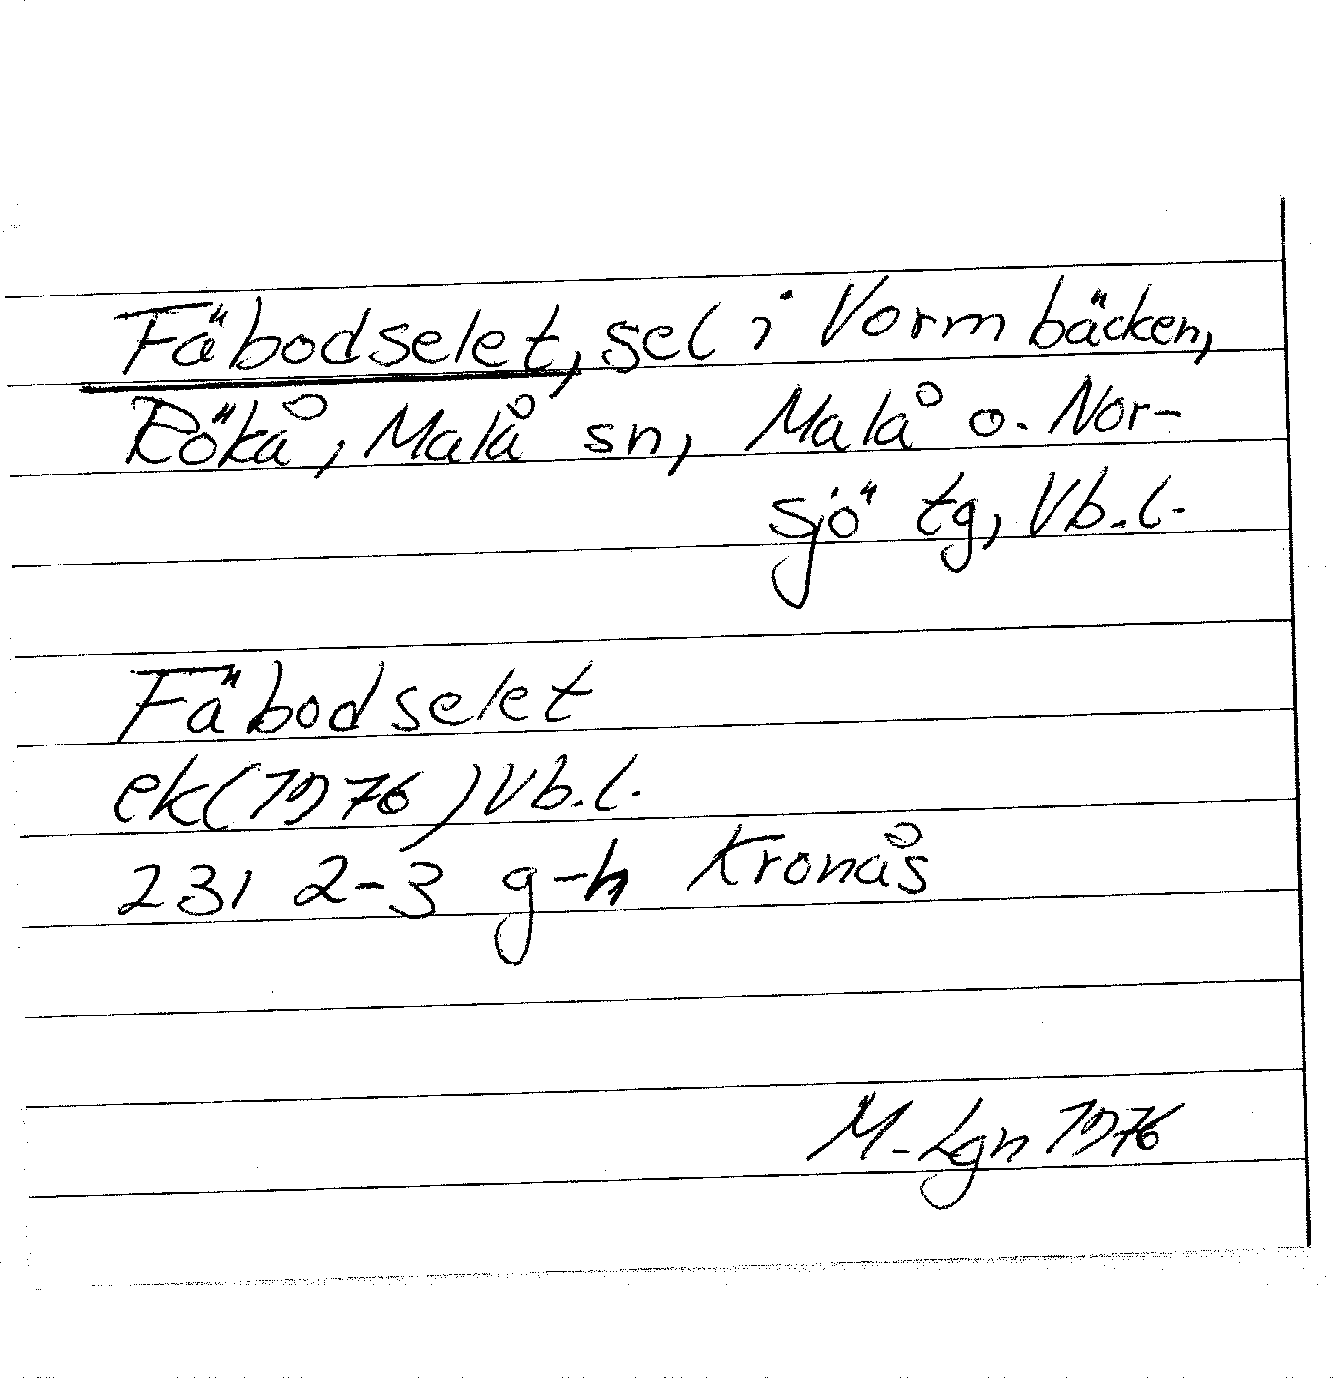 Fäbodselet, sel i Vormbäcken,
Rökå, Malå sn, Malå o. Nor-
sjö tg, Vb.l.
Fäbodselet
ek (1976) Vb.l.
231 2-3 g-h Kronås
M-Lgn 1976